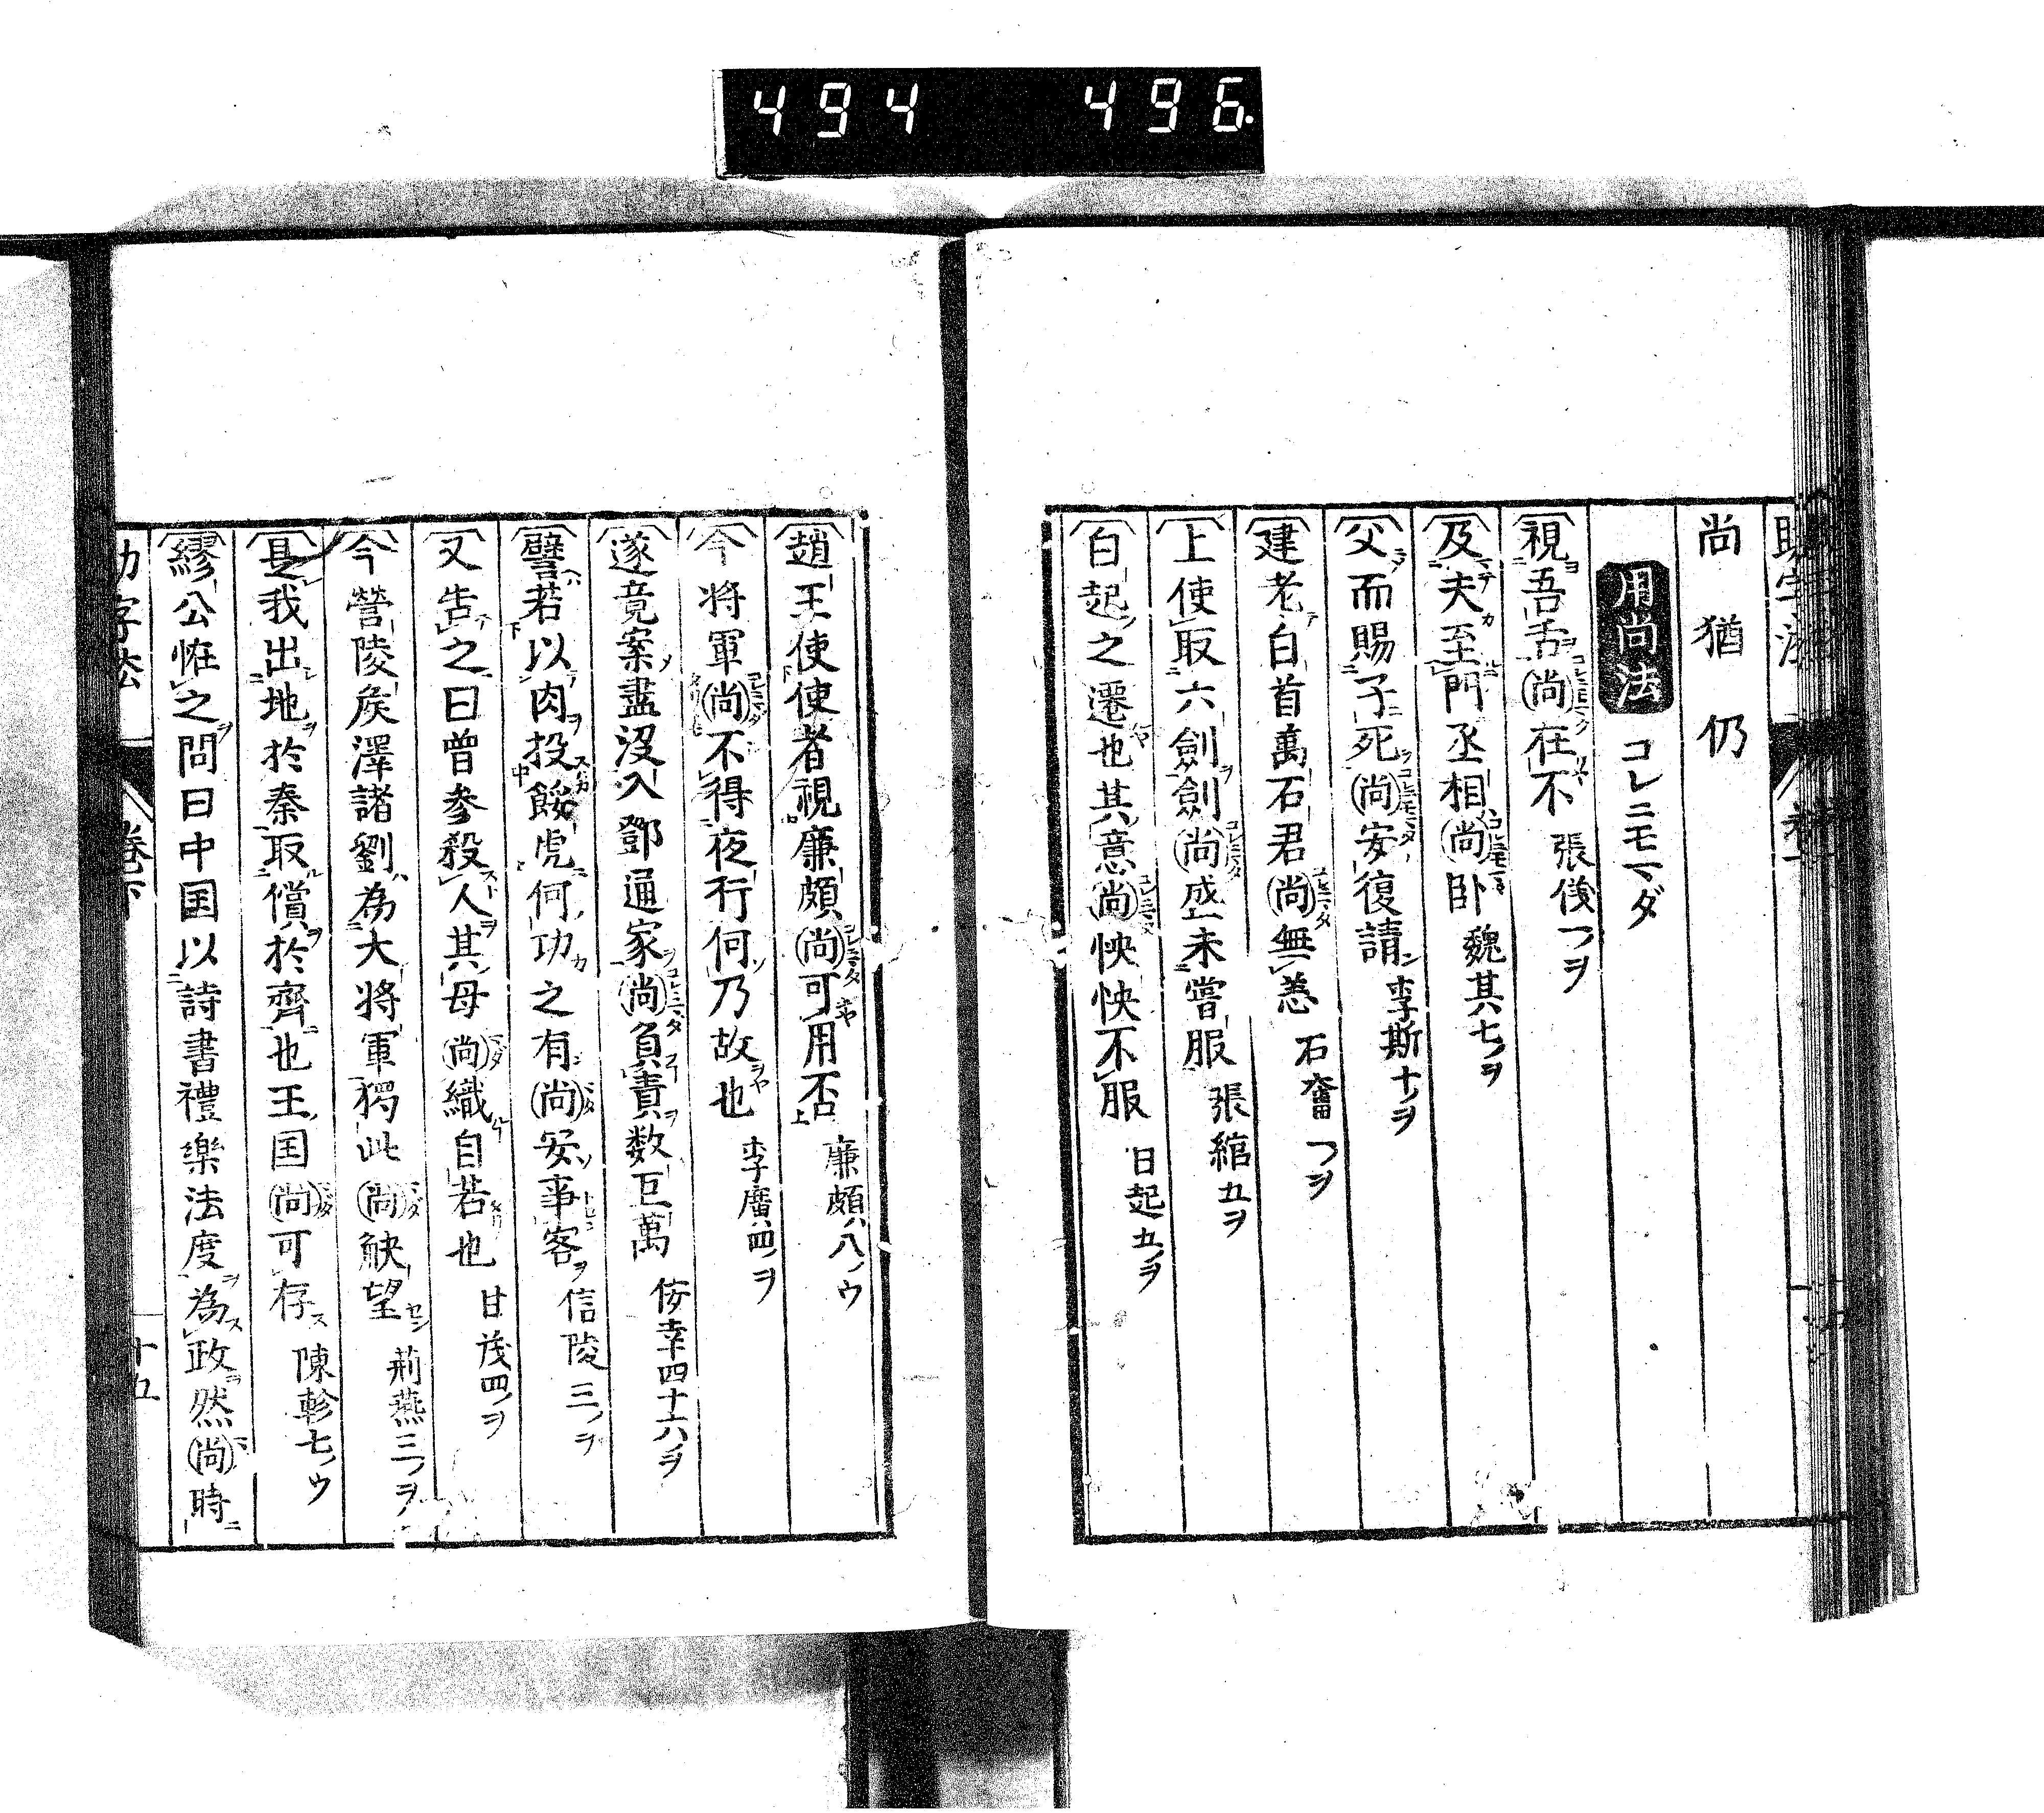 494 496.
尚 猶 仍
用尚法 コレニモマダ
視吾舌尚在不 張儀一ヲ
及夫至門丞相尚卧 魏其七ノヲ
父而賜子死尚安復請 李斯十ノヲ
建老白首萬石君尚無恙 石奮一ヲ
上使取六劍劍尚盛未嘗服 張綰五ヲ
白起之遷也其意尚怏怏不服 白起五ノヲ
趙王使使者視廉頗尚可用否 廉頗八ノウ
今將軍尚不得夜行何乃故也 李廣四ノヲ
遂竟案盡没入鄧通家尚負責数巨萬 佞幸四十六ノヲ
譬若以肉投餒虎何功之有尚安事客 信陵三ノヲ
又告之曰曽参殺人其母尚織自若也 甘茂四ノヲ
今營陵矦澤諸劉為大将軍獨此尚觖望 荊燕三ノヲ
是我出地於秦取償於齊也王国尚可存 陳軫七ノウ
繆公恠之問曰中国以詩書禮樂法度為政然尚時
助字法 巻下 十五